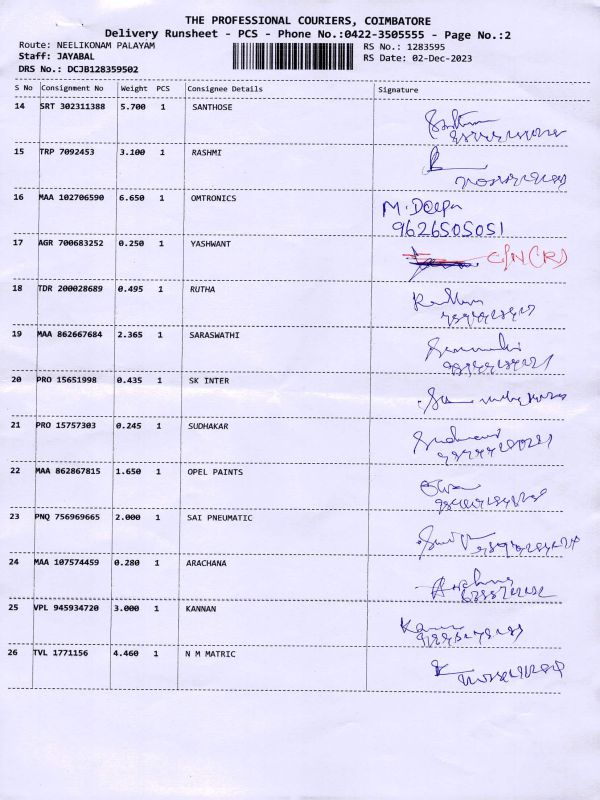 THE PROFESSIONAL COURIERS, COIMBATORE
Delivery Runsheet - PCS - Phone No.:0422-3505555 - Page No.:2
Route: NEELIKONAM PALAYAM RS No.: 1283595
Staff: JAYABAL RS Date: 02-Dec-2023
DRS No.: DCJB128359502
S No Consignment No Weight PCS Consignee Details Signature
14 SRT 302311388 5.700 1 SANTHOSE
15 TRP 7092453 3.100 1 RASHMI
16 MAA 102706590 6.650 1 OMTRONICS M. Deepa
9626505051
17 AGR 700683252 0.250 1 YASHWANT C/N (R)
18 TDR 200028689 0.495 1 RUTHA
19 MAA 862667684 2.365 1 SARASWATHI
20 PRO 15651998 0.435 1 SK INTER
21 PRO 15757303 0.245 1 SUDHAKAR
22 MAA 862867815 1.650 1 OPEL PAINTS
23 PNQ 756969665 2.000 1 SAI PNEUMATIC
24 MAA 107574459 0.280 1 ARACHANA
25 VPL 945934720 3.000 1 KANNAN
26 TVL 1771156 4.460 1 N M MATRIC